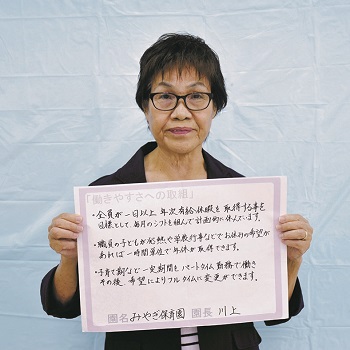 「働きやすさへの取組」
・全員が一日以上 年次有給休暇を取得する事を
目標として毎月のシフトを組んで計画的に休んでいます。
・職員の子どもが発熱や学校行事などでお休みの希望が
あれば一時間単位で年休が取得できます。
・子育て期など一定期間を パートタイム勤務で働き
その後 希望によりフルタイムに変更ができます。
園名 みやぎ保育園 園長 川上